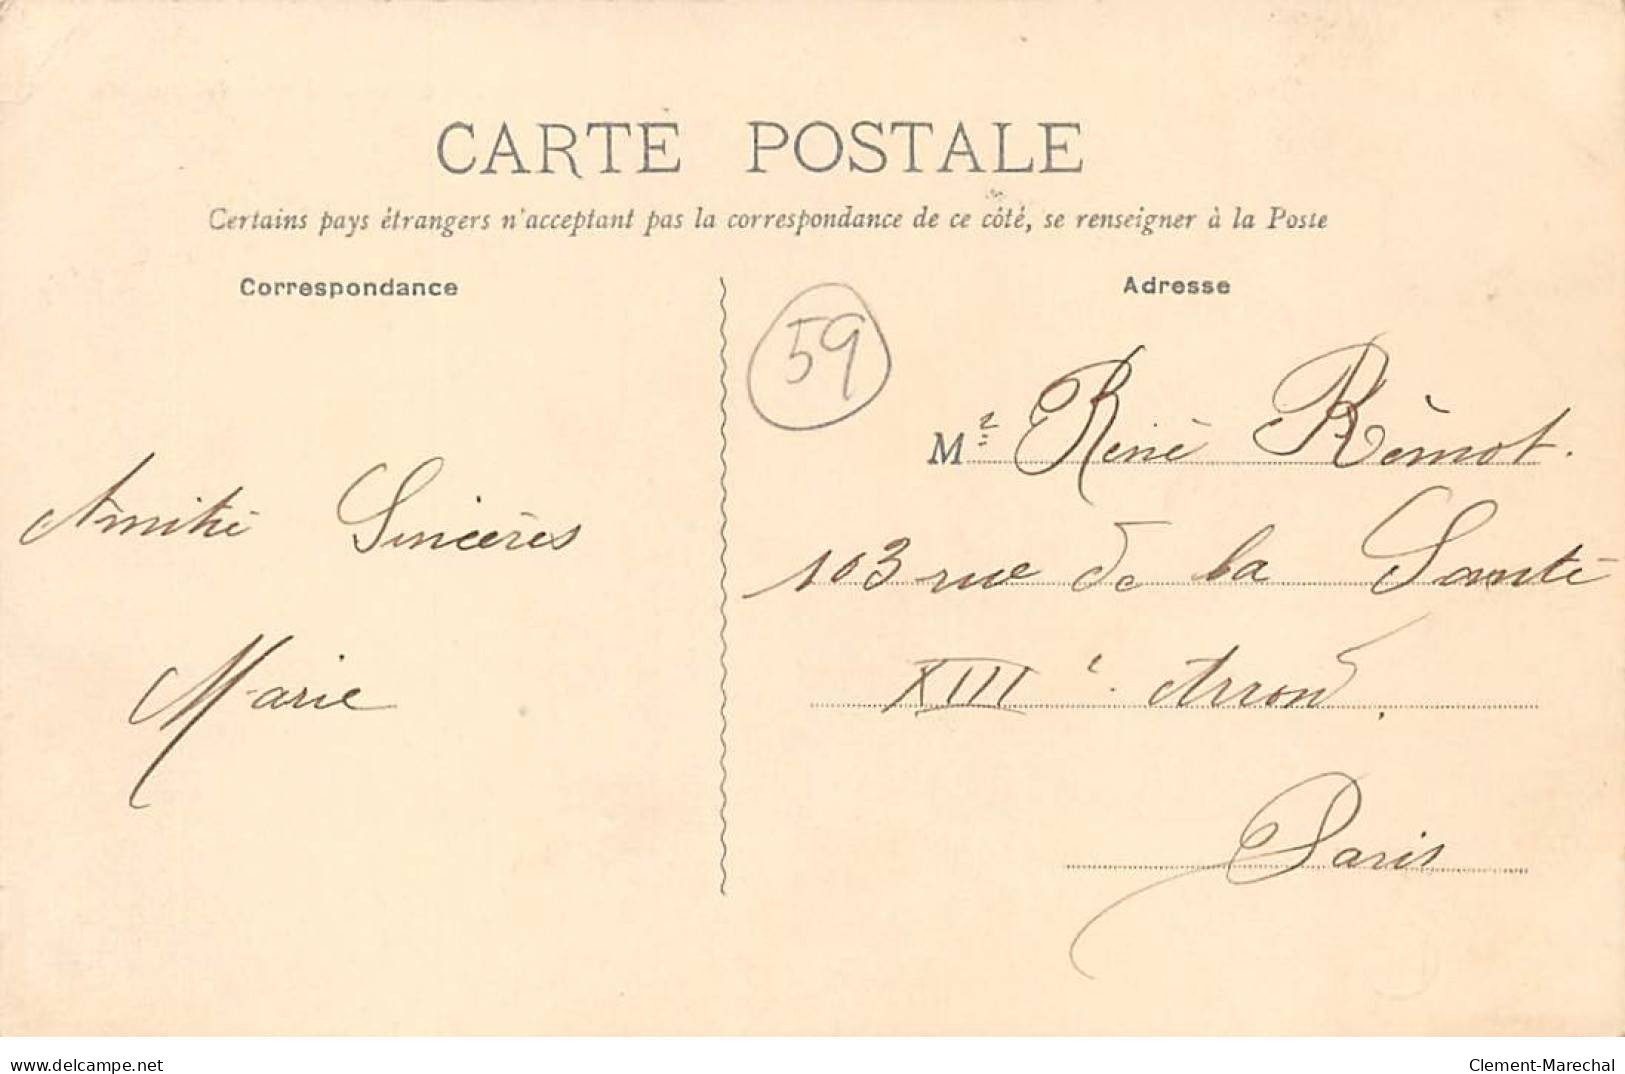 CARTE POSTALE
Certains pays étrangers n'acceptant pas la correspondance de ce côté, se renseigner à la Poste
Correspondance
Adresse
59
Amitié Sincères
Marie
Mr René Rémot.
103 rue de la Santé
XIIIe. Arrond.
Paris
delcampe.net
Clement-Marechal